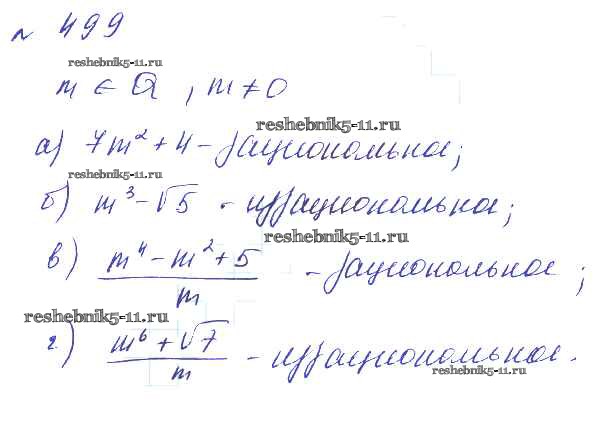 № 499
reshebnik5-11.ru
m ∈ Q , m ≠ 0
reshebnik5-11.ru
а) 7m² + 4 - рациональное;
reshebnik5-11.ru
б) m³ - √5 - иррациональное;
reshebnik5-11.ru
в) (m⁴ - m² + 5)/m - рациональное;
reshebnik5-11.ru
г) (m⁶ + √7)/m - иррациональное.
reshebnik5-11.ru